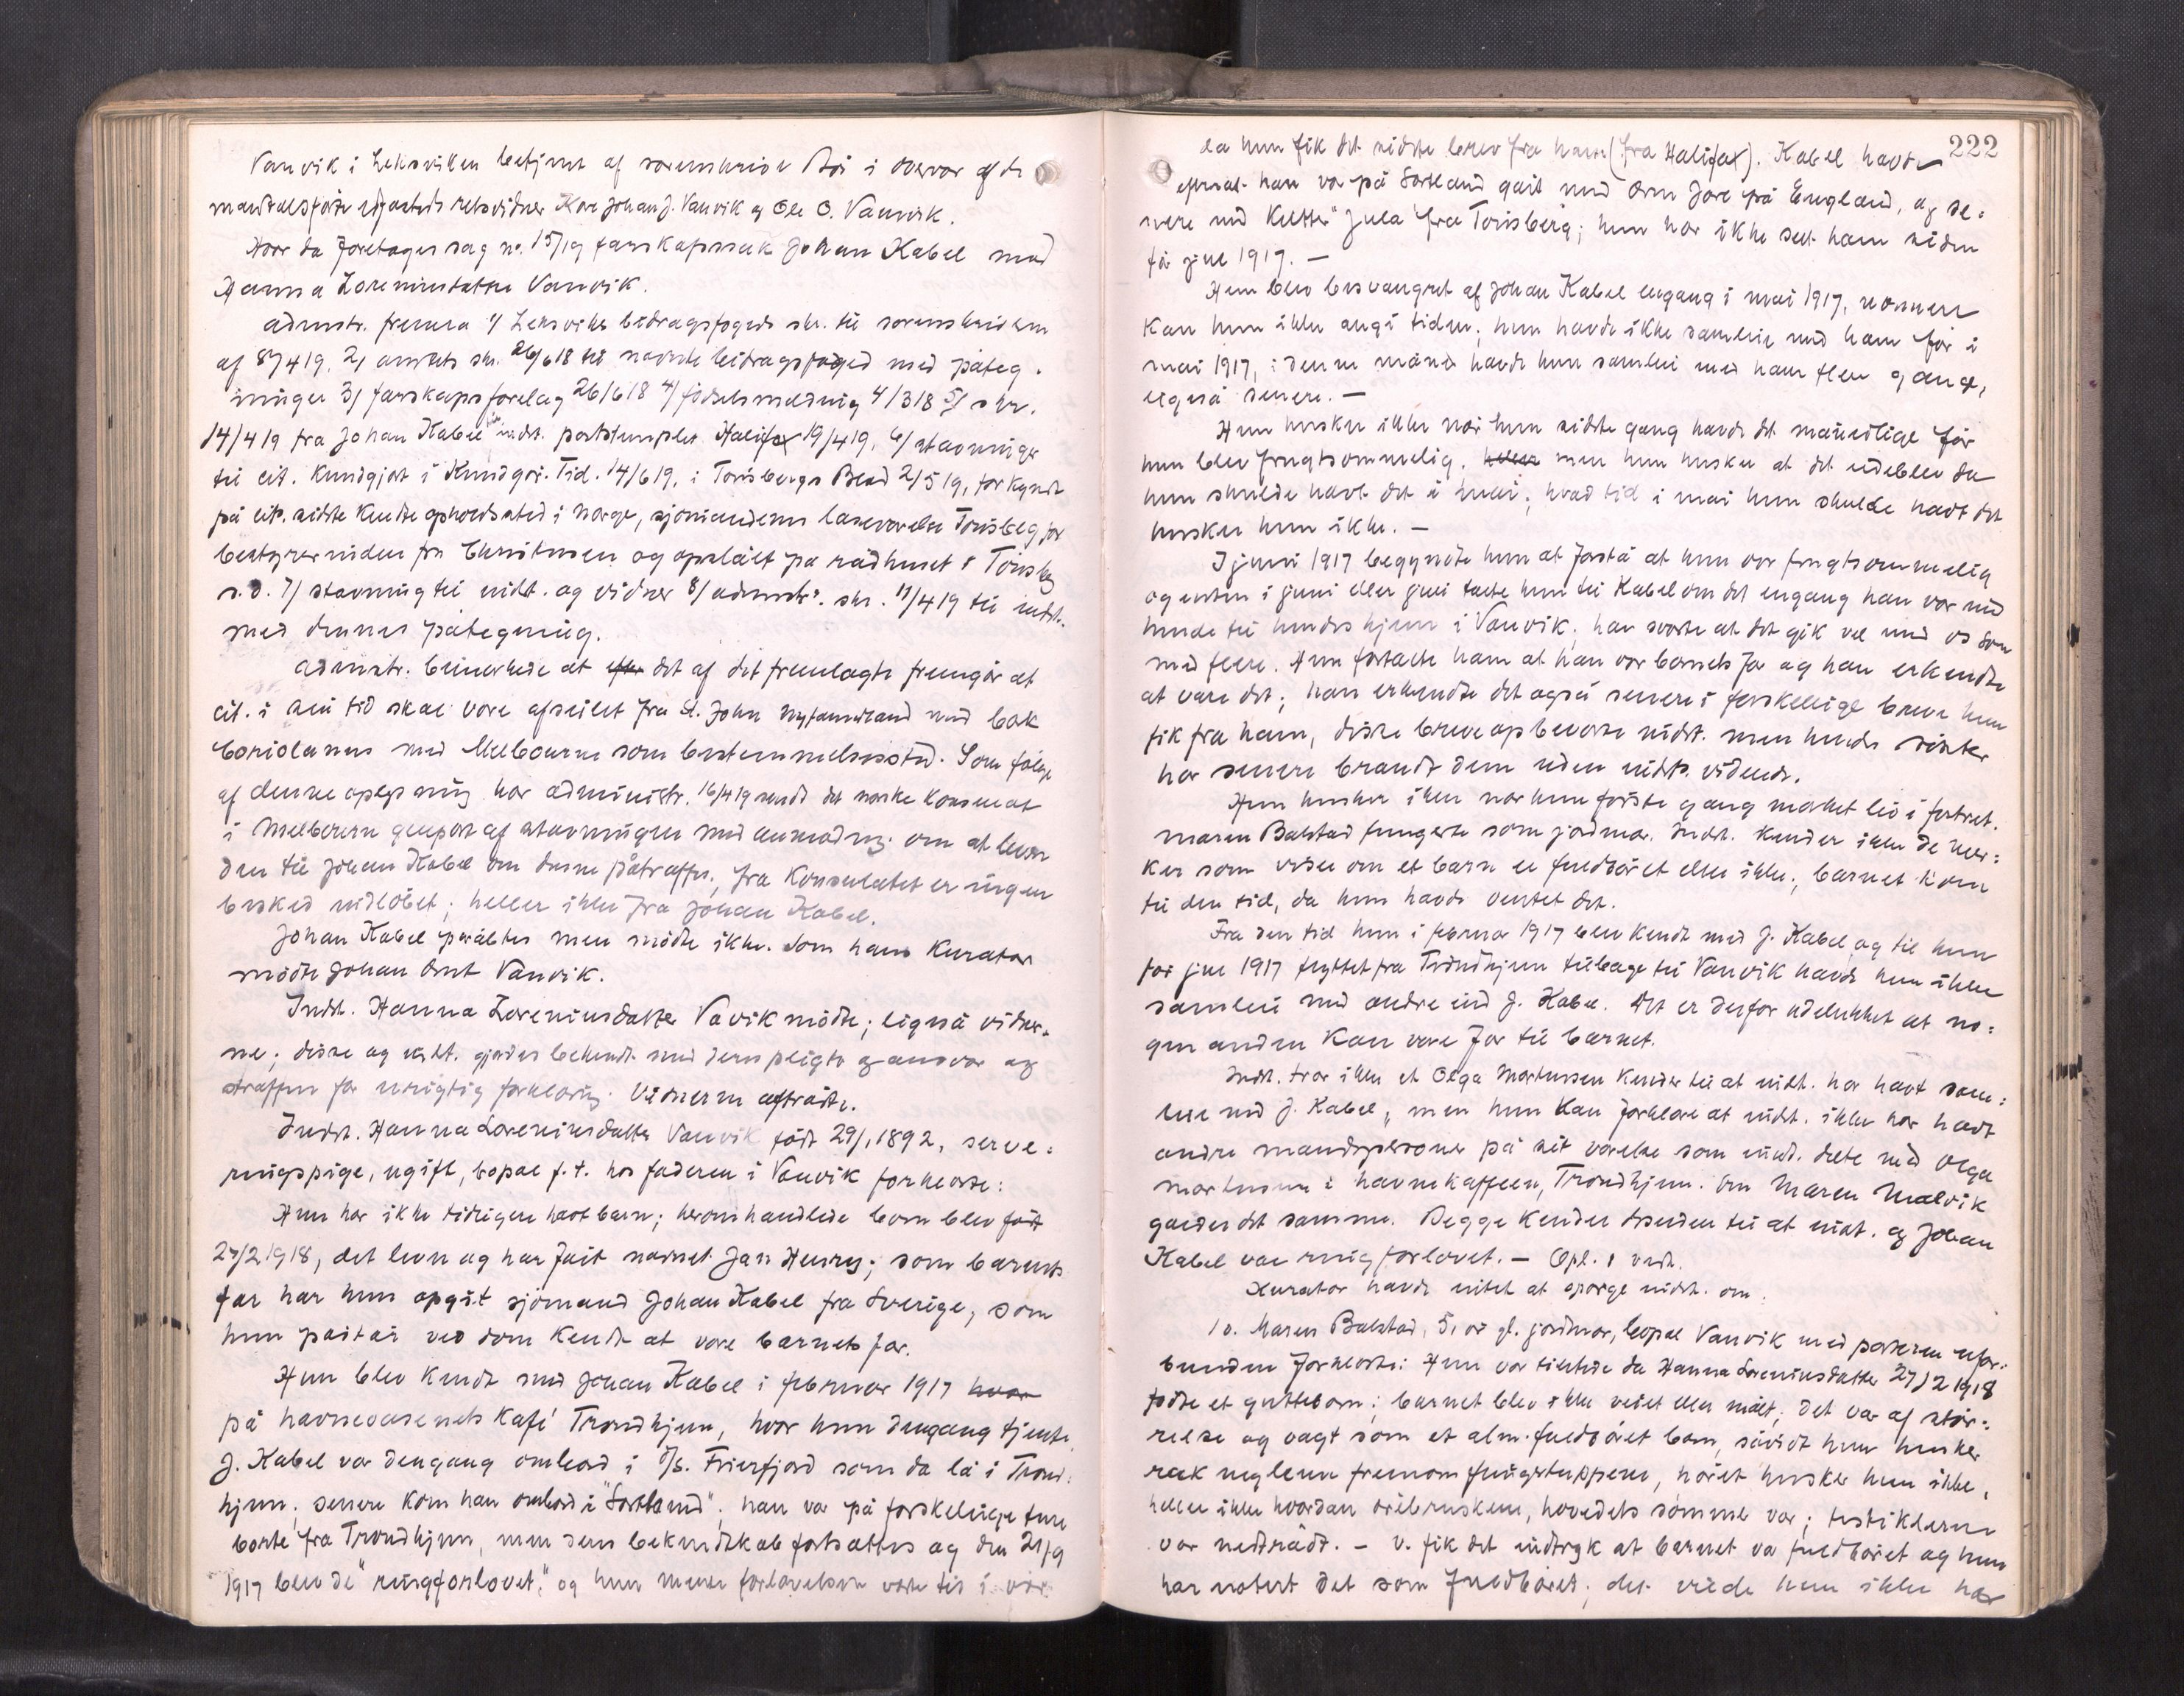 Vanvik i Leksviken betjent af sorenskriver Bói i overvær af de
mandtalsførte edfæstede retsvidner Kare Johan J. Vanvik og Ole O. Vanvik.
Hvor da foretages sag no. 15/19 farskapssak Johan Kabel mod
Hanna Loreninsdatter Vanvik.
admstr. fremla 1/ Leksviks bidragsfogeds skr. til sorenskriveren
af 8/4 19. 2/ amtets skr. 26/6 18 til nævnte bidragsfoged med påteg-
ninger 3/ farskapsforelæg 26/6 18 4/ fødselsmelding 4/3 18 5/ skr.
14/4 19 fra Johan Kabel til indst. poststemplet Halifax 19/4 19. 6/ stævninger
til cit. kundgjort i Kundgør. Tid. 14/6 19, i Tønsbergs Blad 2/5 19, forkyndt
på cit. sidste kendte opholdssted i Norge, sjømandens læseværelse Tønsberg for
bestyrerinden fru Christensen og opslået på rådhuset i Tønsbg
s.d. 7/ stævning til indst. og vidner 8/ admstr. skr. 11/4 19 til indst.
med dennes påtegning.
admstr. bemerkede at det af det fremlagte fremgår at
cit. i sin tid skal være afseilet fra St. John Nyfundland med bark
Coriolanus med Melbourne som bestemmelsessted. Som følge
af denne oplysning har administr. 16/4 19 sendt det norske konsulat
i Melbourne genpart af stævningen med anmodng. om at levere
den til Johan Kabel om denne påtræffes. Fra Konsulatet er ingen
besked indløbet; heller ikke fra Johan Kabel.
Johan Kabel påråbtes men mødte ikke. Som hans Kurator
mødte Johan Arnt Vanvik.
Indst. Hanna Loreninsdatter Vavik mødte; ligeså vidner-
ne; disse og indst. gjordes bekendt med deres pligt og ansvar og
straffen for urigtig forklaring. Vidnerne aftrådte.
Indst. Hanna Loreninsdatter Vanvik født 29/1 1892, serve-
ringspige, ugift, bopæl f.t. hos faderen i Vanvik forklarte:
Hun har ikke tidligere havt barn; heromhandlede barn blev født
27/2 1918, det lever og har fåit navnet Jan Henry; som barnets
far har hun opgit sjømand Johan Kabel fra Sverige, som
hun påstår ved dom kendt at være barnets far.
Hun blev kendt med Johan Kabel i februar 1917 hvor
på havnevæsenets kafé Trondhjem, hvor hun dengang tjente.
J. Kabel var dengang ombord i D/s. Frierfjord som da lå i Trond-
hjem; senere kom han ombord i "Sortland". han var på forskellige ture
borte fra Trondhjem, men deres bekendtskab fortsattes og den 21/9
1917 blev de "ringforlovet," og hun mener forlovelsen varte til i vår
222
da hun fik det sidste brev fra ham (fra Halifax). Kabel havde
efterat han var på Sortland gåit med Orm Jarl på England, og se-
nere med Kutter "Jula" fra Tønsberg; hun har ikke seet ham siden
før jul 1917. —
Hun blev besvangret af Johan Kabel engang i mai 1917, nærmere
kan hun ikke angi tiden; hun havde ikke samleie med ham før i
mai 1917; i denne måned havde hun samleie med ham flere gange,
ligeså senere. —
Hun husker ikke når hun sidste gang havde det månedlige før
hun blev frugtsommelig. men hun husker at det udeblev da
hun skulde havt det i mai; hvad tid i mai hun skulde havt det
husker hun ikke. —
I juni 1917 begyndte hun at forstå at hun var frugtsommelig
og enten i juni eller juli talte hun til Kabel om det engang han var med
hende til hendes hjem i Vanvik; han svarte at det gik vel med os som
med flere. Hun fortalte ham at han var barnets far og han erkendte
at være det; han erkendte det også senere i forskellige breve hun
fik fra ham, disse breve opbevarte indst. men hendes søster
har senere brændt dem uden indsts. vidende.
Hun husker ikke når hun første gang mærket liv i fostret.
Maren Balstad fungerte som jordmor. Indst. kender ikke de mer-
ker som viser om et barn er fuldbåret eller ikke; barnet kom
til den tid, da hun havde ventet det.
Fra den tid hun i februar 1917 blev kendt med J. Kabel og til hun
før jul 1917 flyttet fra Trondhjem tilbage til Vanvik havde hun ikke
samleie med andre end J. Kabel. Det er derfor udelukket at no-
gen anden kan være far til barnet.
Indst. tror ikke at Olga Mortensen kender til at indst. har havt sam-
leie med J. Kabel, men hun kan forklare at indst. ikke har havt
andre mandspersoner på sit værelse som indst. delte med Olga
Mortensen i havnekaffeen, Trondhjem. Om Maren Malvik
gælder det samme. Begge kender desuden til at indst. og Johan
Kabel var ringforlovet. — Opl. & vedt.
Kurator havde intet at spørge indst. om.
1v. Maren Balstad, 51 år gl. jordmor, bopæl Vanvik med parterne ufor-
bunden forklarte: Hun var tilstede da Hanna Loreninsdatter 27/2 1918
fødte et guttebarn; barnet blev ikke veiet eller målt; det var af stør-
relse og vægt som et alm. fuldbåret barn, såvidt hun husker
rak neglene frem om fingertuppene, håret husker hun ikke,
heller ikke hvordan ørebruskene, hovedets sømme var; testiklerne
var nedtrådt. — V. fik det indtryk at barnet var fuldbåret og hun
har notert det som fuldbåret; det vilde hun ikke har